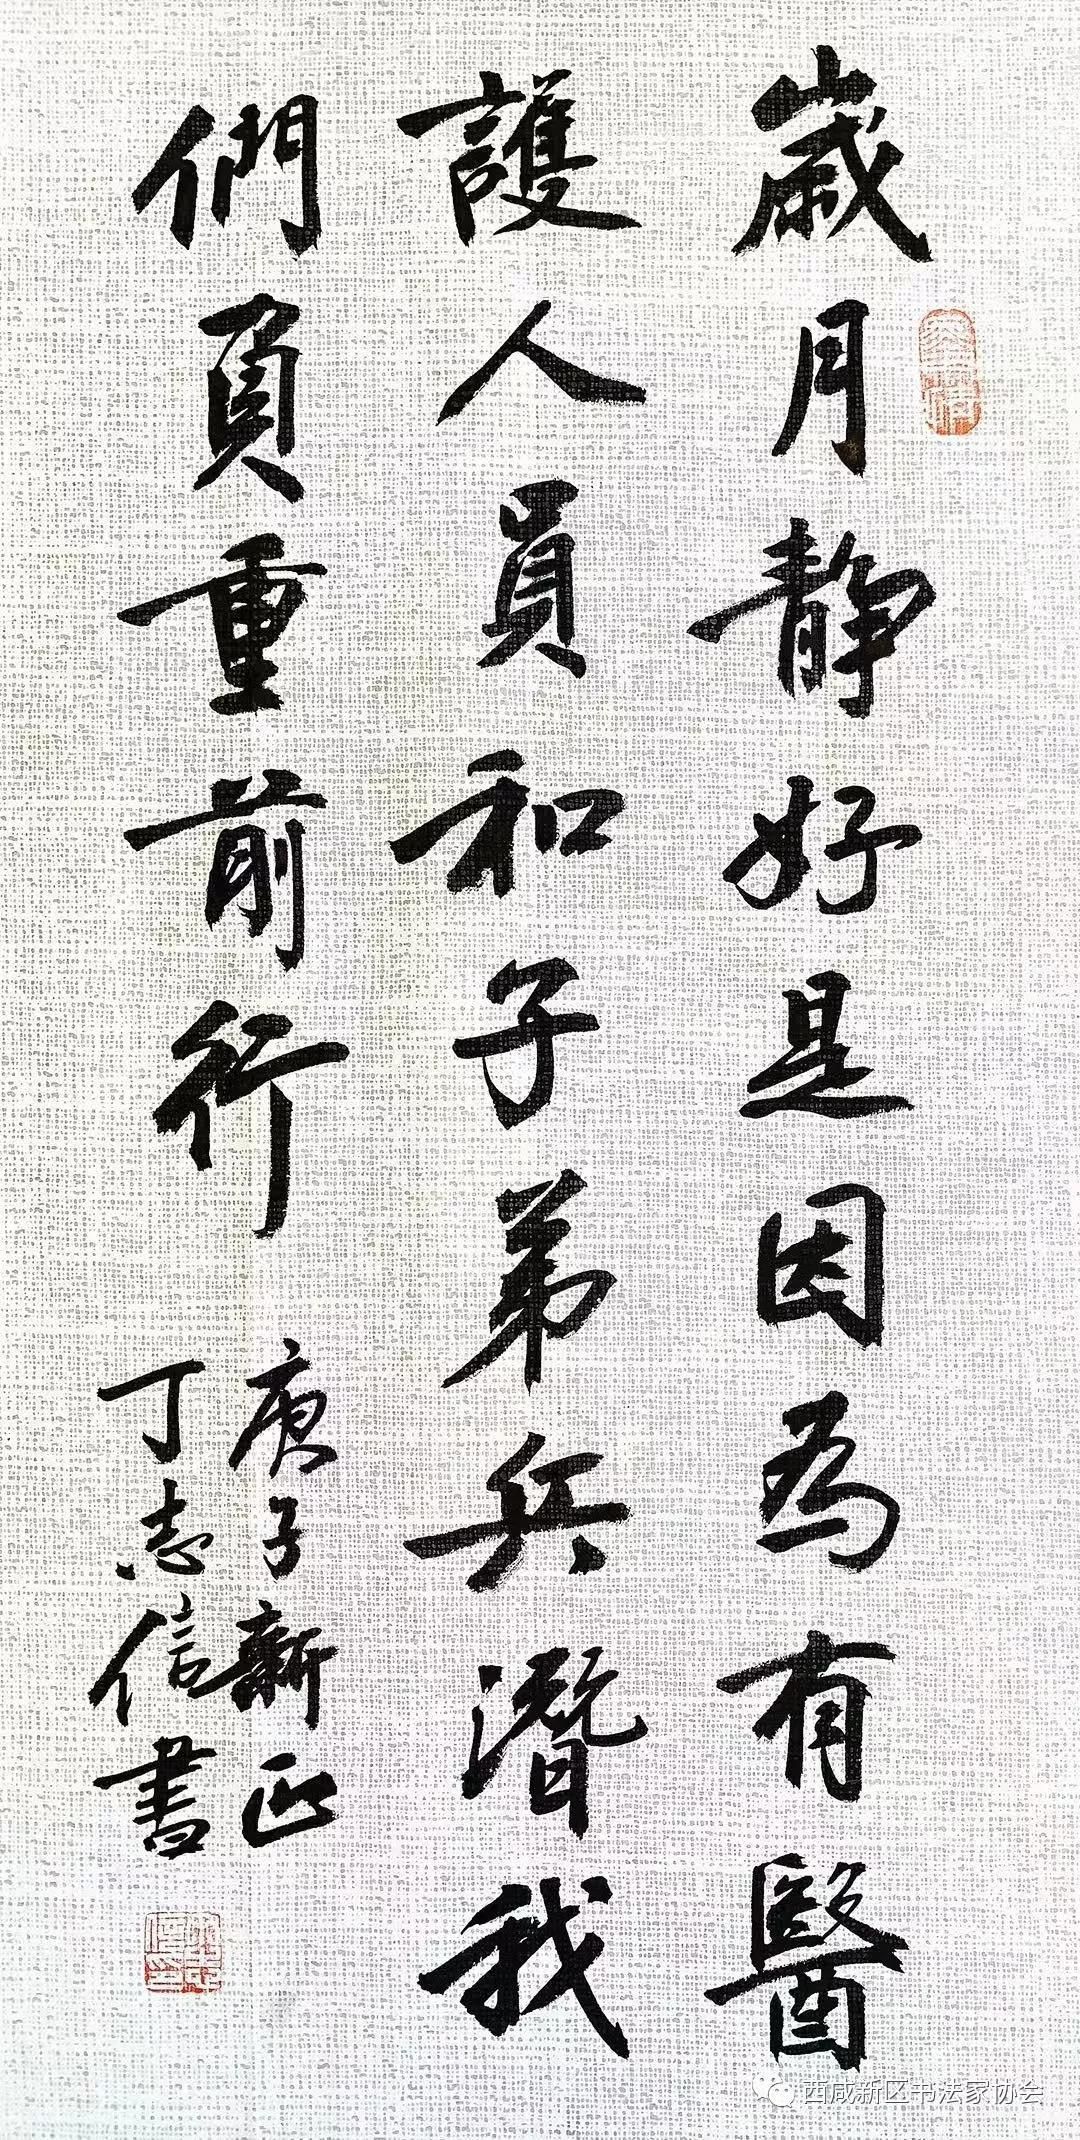 歲月静好是因为有醫
護人員和子弟兵潛我
們負重前行
庚子新正
丁志信書
西咸新区书法家协会